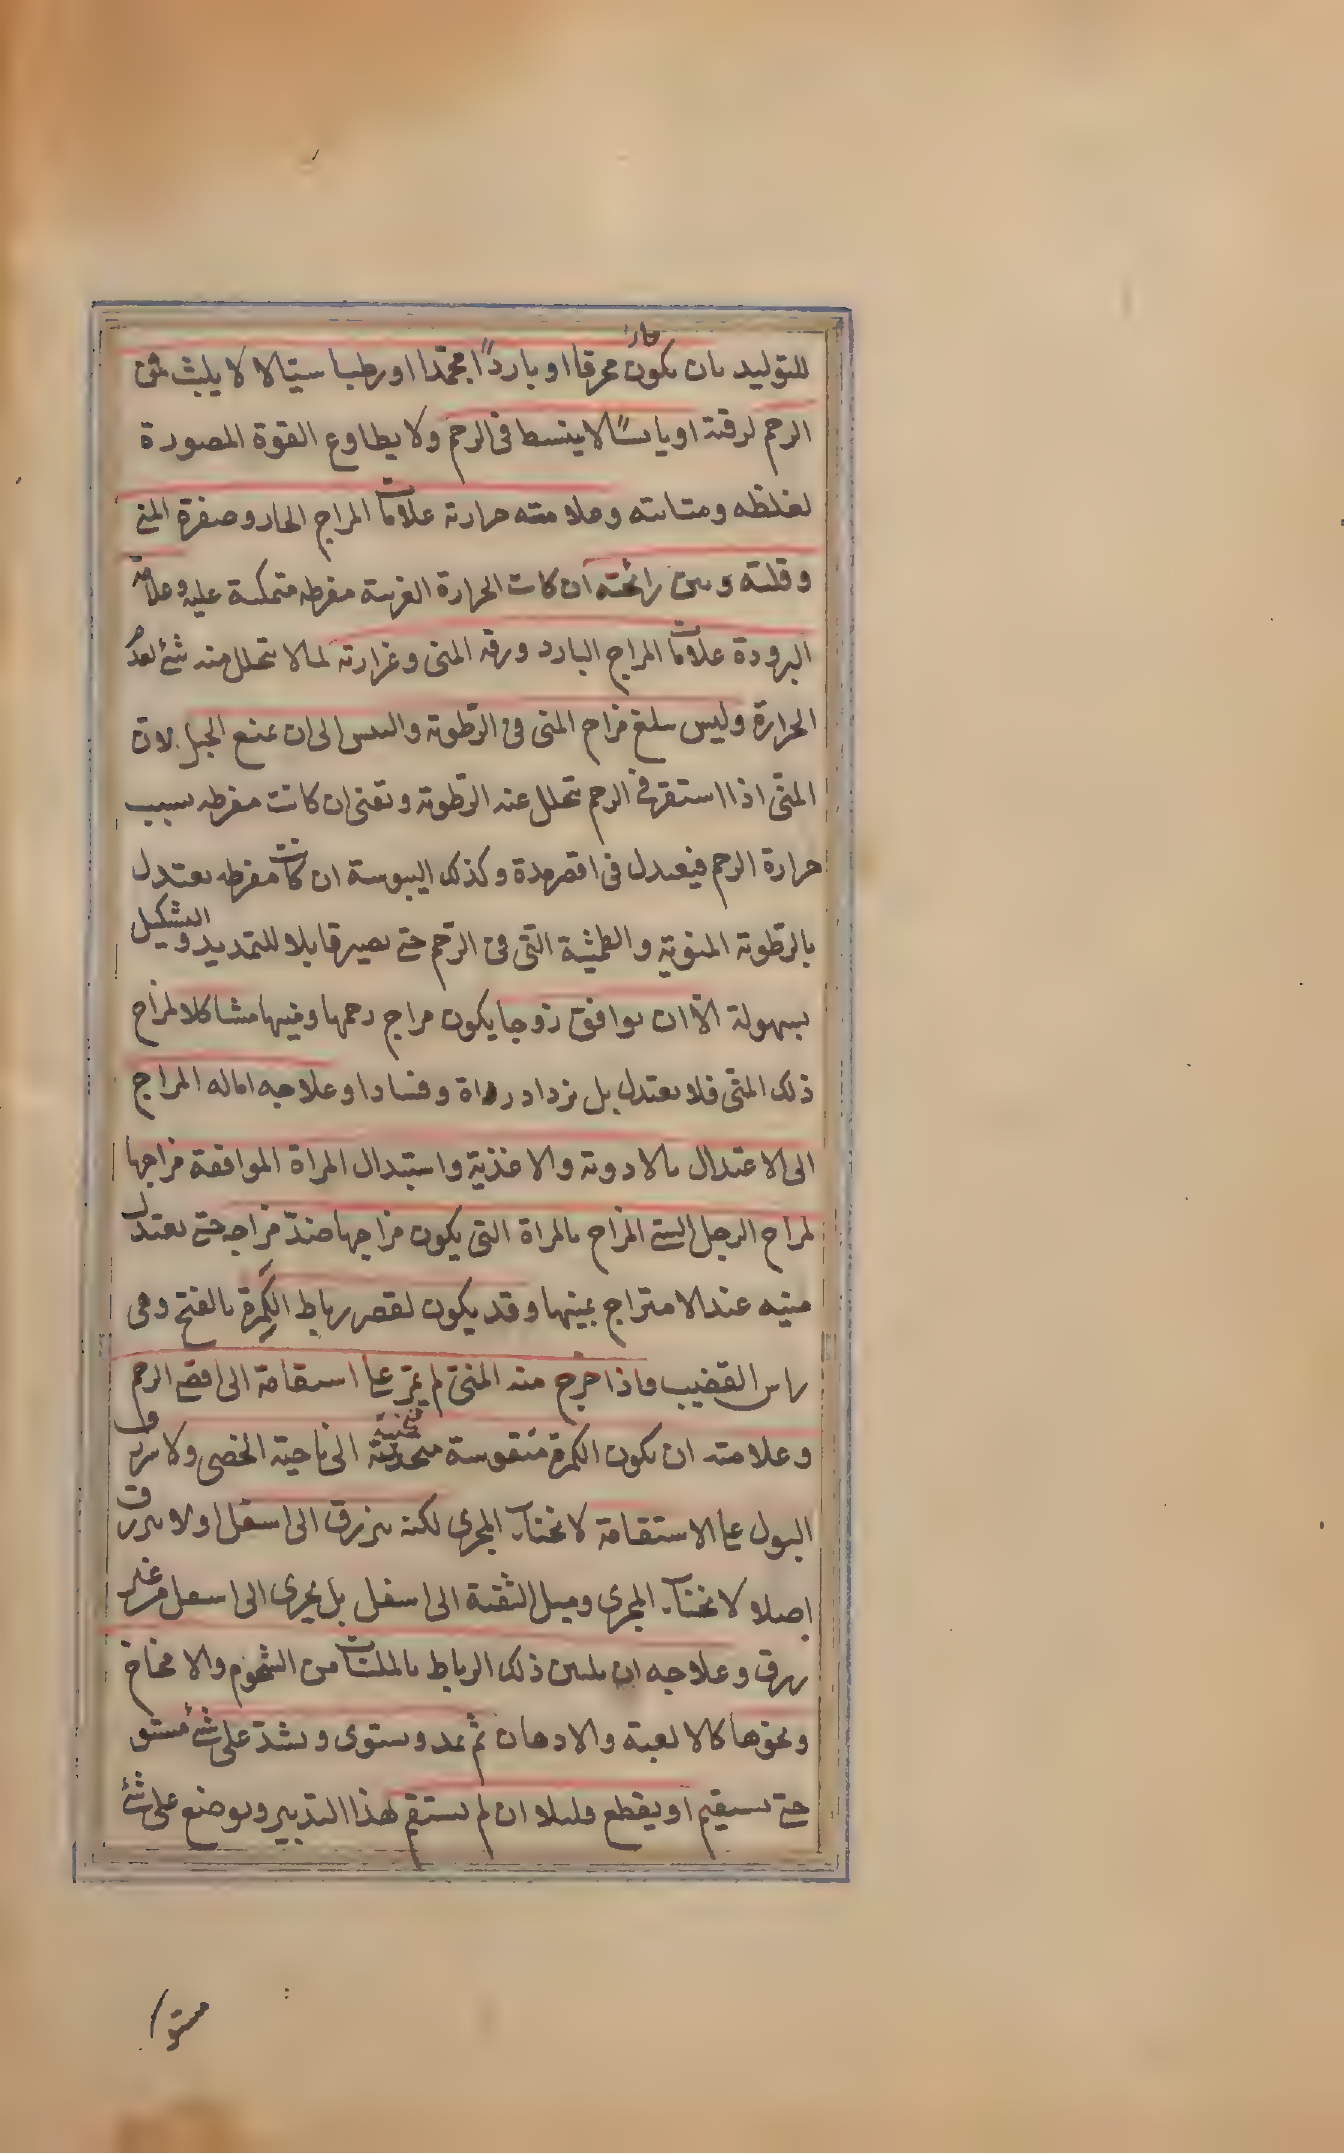 للتوليد بان يكون حارا محرقا او باردا مجمدا او رطبا سيالا لا يلبث في
الرحم لرقته او يابسا لا ينبسط في الرحم ولا يطاوع القوة المصورة
لغلظه ومتانته وعلامته حرارته علامات المزاج الحار وصفرة المنى
وقلته ونتن رائحته ان كانت الحرارة الغريبة مفرطه متمكنة عليه وعلامة
البرودة علامات المزاج البارد ورقة المنى وغزارته لما لا يتحلل منه شئ لعدم
الحرارة وليس يبلغ مزاج المنى فى الرطوبة واليبس الى ان يمنع الحبل لان
المنى اذا استقر فى الرحم يتحلل عنه الرطوبة وتفنى ان كانت مفرطه بسبب
حرارة الرحم فيعتدل فى اقصر مدة وكذلك اليبوسة ان كانت مفرطه يعتدل
بالرطوبة المنوية والطمثية التى فى الرحم حتى يصير قابلا للتمديد والتشكيل
بسهولة الا ان يوافق زوجا يكون مزاج رحمها ومنيها مشاكلا لمزاج
ذلك المنى فلا يعتدل بل يزداد رداة وفسادا وعلاجه امالة المزاج
الى الاعتدال بالادوية والاغذية واستبدال المراة الموافقة مزاجها
لمزاج الرجل السئ المزاج بالمراة التى يكون مزاجها ضد مزاجه حتى يعتدل
منيه عند الامتزاج بمنيها وقد يكون لقصر رباط الكمرة بالفتح وهى
راس القضيب فاذا خرج منه المنى لم يمر على استقامة الى اقصى الرحم
وعلامته ان يكون الكمرة متقوسة منحنية الى ناحية الخصى ولا يزرق
البول على الاستقامة لانحناء المجرى لكنه ينزرق الى اسفل او لا يزرق
اصلا لانحناء المجرى وميل الثقبة الى اسفل بل يجرى الى اسفل من غير
زرق وعلاجه ان يلين ذلك الرباط بالملينات من الشحوم والامخاخ
ونحوها كالالعبة والادهان ثم يمد ويستوى ويشد على شئ مستو
حتى يستقيم او يقطع قليلا ان لم يستقم بهذا التدبير ويوضع على شئ
مستو